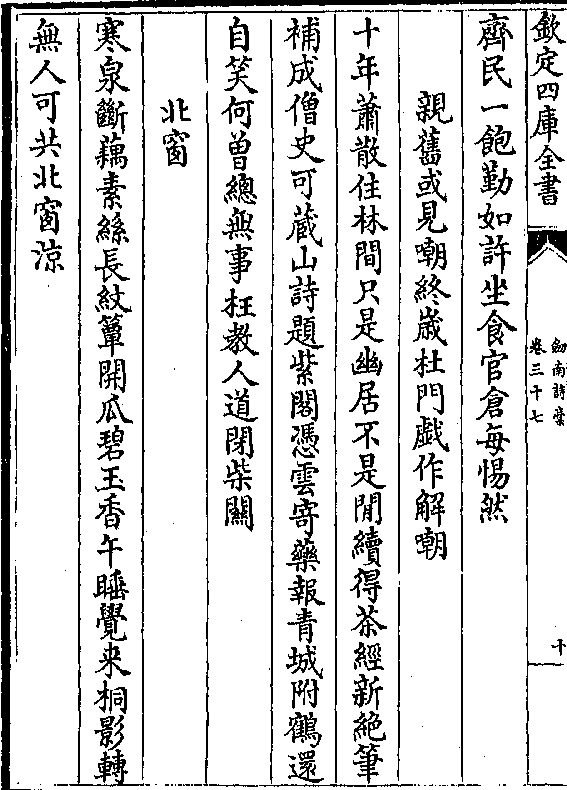 欽定四庫全書
劔南詩稾
卷三十七
十
齊民一飽勤如許坐食官倉每惕然
親舊或見嘲終歲杜門戲作解嘲
十年蕭散住林間只是幽居不是閒續得茶經新絶筆
補成僧史可蔵山詩題紫閣憑雲寄藥報青城附鶴還
自笑何曾總無事枉教人道閉柴關
北窗
寒泉斷藕素絲長紋簟開瓜碧玉香午睡覺来桐影轉
無人可共北窗涼